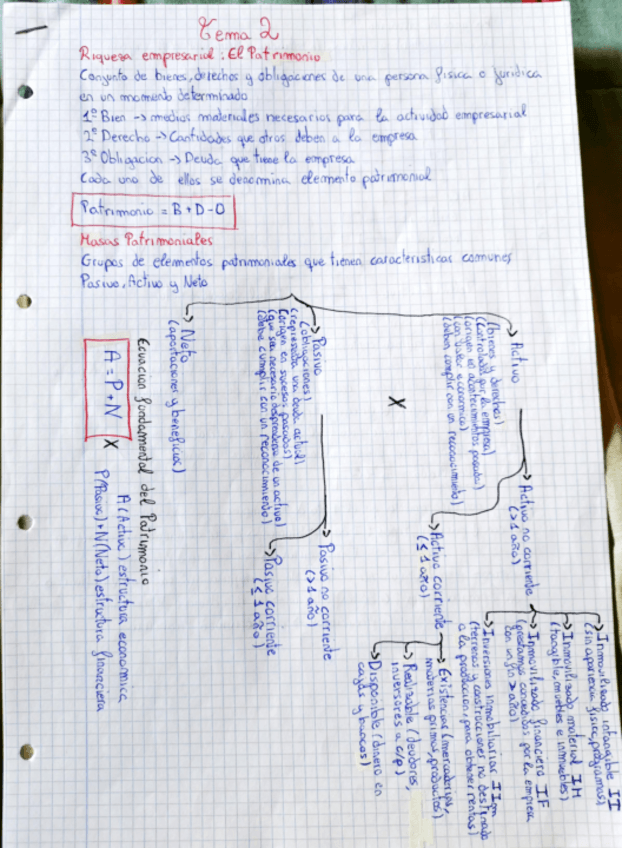 Tema 2
Riqueza empresarial: El Patrimonio
Conjunto de bienes, derechos y obligaciones de una persona física o jurídica
en un momento determinado
1º Bien → medios materiales necesarios para la actividad empresarial
2º Derecho → Cantidades que otros deben a la empresa
3º Obligacion → Deuda que tiene la empresa
Cada uno de ellos se denomina elemento patrimonial
Patrimonio = B + D - O
Masas Patrimoniales
Grupos de elementos patrimoniales que tienen caracteristicas comunes
Pasivo, Activo y Neto
→ Activo
(bienes y derechos)
(controlados por la empresa)
(origen en acontecimientos pasados)
(con valor economico)
(deben cumplir con un reconocimiento)
→ Activo no corriente
(> 1 año)
→ Inmovilizado intangible II
(sin apariencia fisica, programas)
→ Inmovilizado material IM
(tangible, muebles e inmuebles)
→ Inmovilizado financiero IF
(prestamos concedidos por la empresa
con un fin > año)
→ Inversiones inmobiliarias IInm
(terrenos y construcciones no destinado
a la produccion, para obtener rentas)
→ Activo corriente
(≤ 1 año)
→ Existencias (mercaderias,
materias primas, productos)
→ Realizable (deudores,
inversores a c/p)
→ Disponible (dinero en
caja y bancos)
X
→ Pasivo
(obligaciones)
(representa una deuda actual)
(origen en sucesos pasados)
(que sea necesario desprenderse de un activo)
(debe cumplir con un reconocimiento)
→ Pasivo no corriente
(> 1 año)
→ Pasivo corriente
(≤ 1 año)
→ Neto
(aportaciones y beneficios)
Ecuacion fundamental del Patrimonio
A = P + N
X
A (Activo) estructura economica
P (Pasivo) + N (Neto) estructura financiera